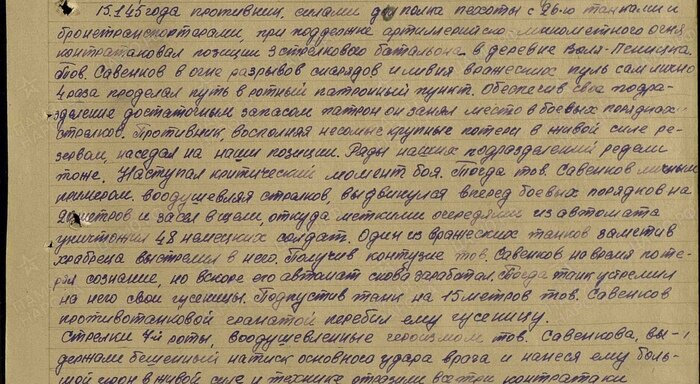 15.1.45 года противник, силами до полка пехоты с 26-ю танками и
бронетранспортерами, при поддержке артиллерийско минометного огня
контратаковал позиции 3 стрелкового батальона в деревне Воля-Псницка
тов. Савенков в огне разрывов снарядов и ливня вражеских пуль сам лично
4 раза проделал путь в ротный патронный пункт. Обеспечив свое подра-
зделение достаточным запасом патрон он занял место в боевых порядках
стрелков. Противник, восполняя несомые крупные потери в живой силе ре-
зервом, наседал на наши позиции. Ряды наших подразделений редели
тоже. Наступал критический момент боя. Тогда тов. Савенков личным
примером, воодушевляя стрелков, выдвинулся вперед боевых порядков на
метров и засел в щели, откуда меткими очередями из автомата
уничтожил 48 немецких солдат. Один из вражеских танков заметив
храбреца выстрелил в него. Получив контузию тов. Савенков на время поте-
рял сознание, но вскоре его автомат снова заработал. Тогда танк устремил
на него свои гусеницы. Подпустив танк на 15 метров тов. Савенков
противотанковой гранатой перебил ему гусеницу.
Стрелки 7-й роты, воодушевленные героизмом тов. Савенкова, вы-
держали бешенный натиск основного удара врага и нанеся ему боль-
шой урон в живой силе и технике отразили все три контратаки